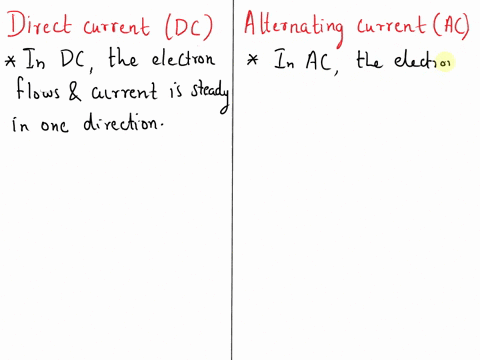 Direct current (DC)
* In DC, the electron
flows & current is steady
in one direction.
Alternating current (AC)
* In AC, the electron